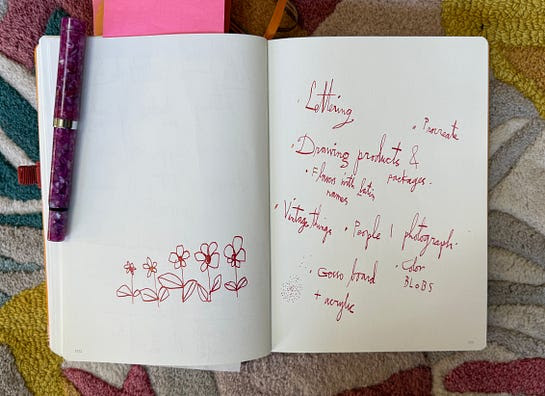 · Lettering
· Procreate
· Drawing products &
packages.
· Flowers with latin
names
· Vintage things
· People I photograph.
· Gesso board
+ acrylic
· Color
BLOBS